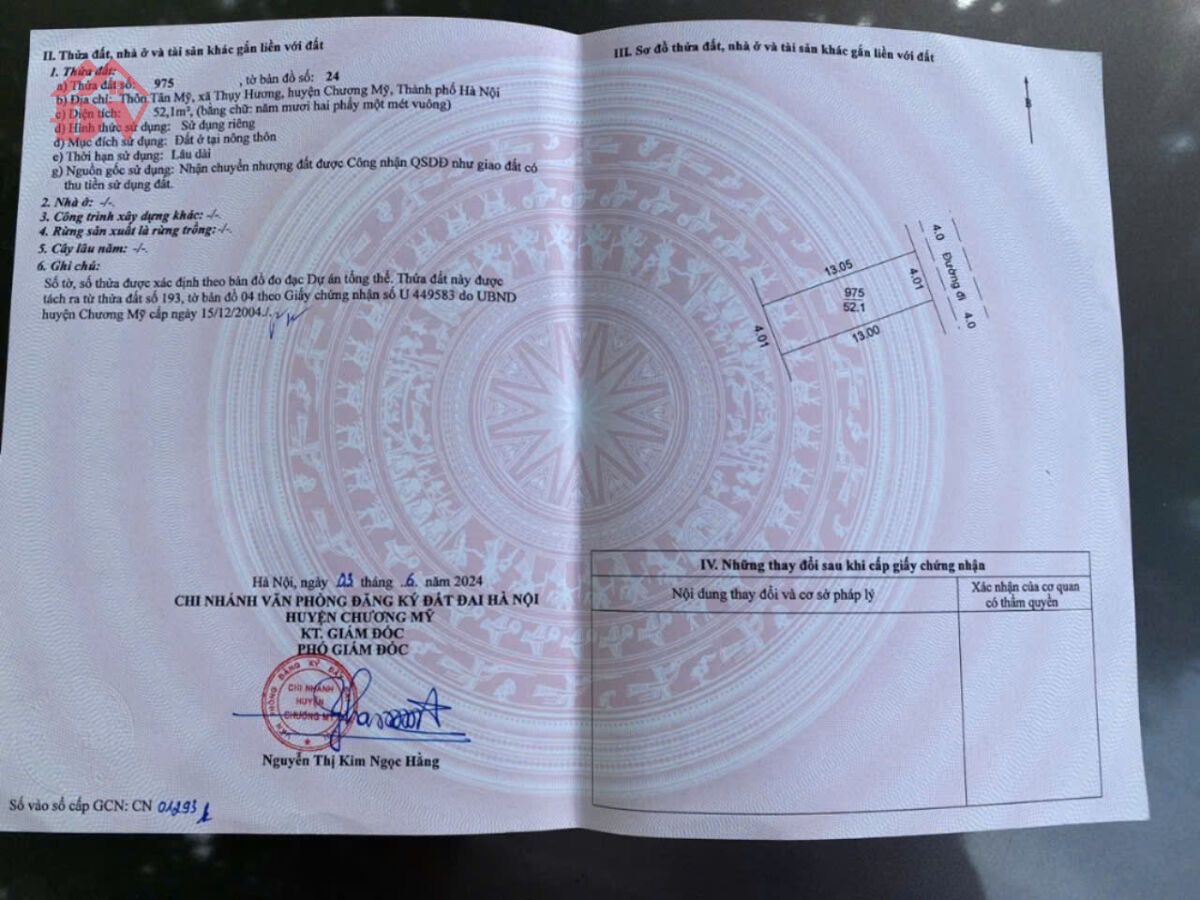 II. Thửa đất, nhà ở và tài sản khác gắn liền với đất
1. Thửa đất:
a) Thửa đất số: 975 , tờ bản đồ số: 24
b) Địa chỉ: Thôn Tân Mỹ, xã Thụy Hương, huyện Chương Mỹ, Thành phố Hà Nội
c) Diện tích: 52,1m², (bằng chữ: năm mươi hai phẩy một mét vuông)
d) Hình thức sử dụng: Sử dụng riêng
đ) Mục đích sử dụng: Đất ở tại nông thôn
e) Thời hạn sử dụng: Lâu dài
g) Nguồn gốc sử dụng: Nhận chuyển nhượng đất được Công nhận QSDĐ như giao đất có
thu tiền sử dụng đất.
2. Nhà ở: -/-.
3. Công trình xây dựng khác: -/-.
4. Rừng sản xuất là rừng trồng: -/-.
5. Cây lâu năm: -/-.
6. Ghi chú:
Số tờ, số thửa được xác định theo bản đồ đo đạc Dự án tổng thể. Thửa đất này được
tách ra từ thửa đất số 193, tờ bản đồ 04 theo Giấy chứng nhận số U 449583 do UBND
huyện Chương Mỹ cấp ngày 15/12/2004./.
Hà Nội, ngày 03 tháng 6 năm 2024
CHI NHÁNH VĂN PHÒNG ĐĂNG KÝ ĐẤT ĐAI HÀ NỘI
HUYỆN CHƯƠNG MỸ
KT. GIÁM ĐỐC
PHÓ GIÁM ĐỐC
CHI NHÁNH
HUYỆN
CHƯƠNG MỸ
VĂN PHÒNG ĐĂNG KÝ ĐẤT
Nguyễn Thị Kim Ngọc Hằng
Số vào sổ cấp GCN: CN 01293
III. Sơ đồ thửa đất, nhà ở và tài sản khác gắn liền với đất
B
13.05
4.01
975
52.1
4.01
13.00
4.0
Đường đi
4.0
IV. Những thay đổi sau khi cấp giấy chứng nhận
Nội dung thay đổi và cơ sở pháp lý
Xác nhận của cơ quan
có thẩm quyền